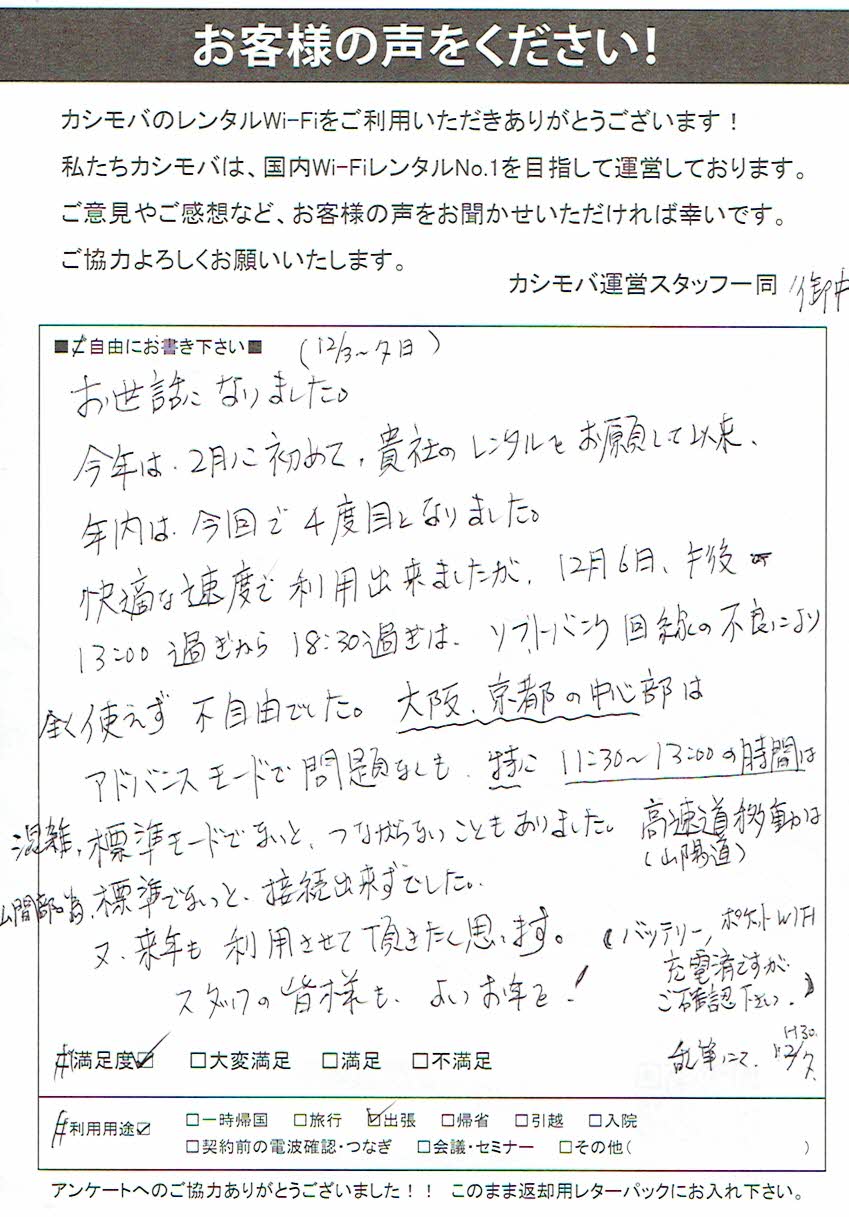 お客様の声をください!
カシモバのレンタルWi-Fiをご利用いただきありがとうございます!
私たちカシモバは、国内Wi-FiレンタルNo.1を目指して運営しております。
ご意見やご感想など、お客様の声をお聞かせいただければ幸いです。
ご協力よろしくお願いいたします。
カシモバ運営スタッフ一同 御中
■ご自由にお書き下さい■ (12/3~7日)
お世話になりました。
今年は、2月に初めて、貴社のレンタルをお願して以来、
年内は、今回で4度目となりました。
快適な速度で利用出来ましたが、12月6日、午後
13:00過ぎから18:30過ぎは、ソフトバンク回線の不良により
全く使えず不自由でした。大阪、京都の中心部は
アドバンスモードで問題なしも、特に11:30~13:00の時間は
混雑、標準モードでないと、つながらないこともありました。高速道移動は
(山陽道)
山間部の為、標準でないと、接続出来ずでした。
又、来年も利用させて頂きたく思います。
(バッテリー、ポケットWIFI
充電済ですが
ご確認下さい。)
スタッフの皆様も、よいお年を!
乱筆にて、12/7. 17:30.
満足度☑ □大変満足 □満足 □不満足
利用用途☑ □一時帰国 □旅行 ☑出張 □帰省 □引越 □入院
□契約前の電波確認・つなぎ □会議・セミナー □その他( )
アンケートへのご協力ありがとうございました!! このまま返却用レターパックにお入れ下さい。